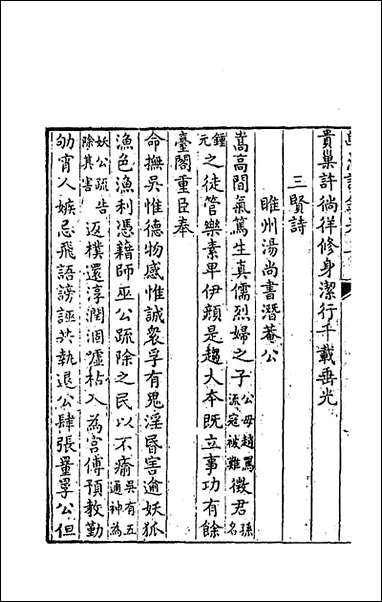 貴巢許徜徉修身潔行千載垂光
三賢詩
睢州湯尚書潛菴公
嵩高間氣篤生真儒烈婦之子公母趙罵流寇被難徵君孫名
鍾元之徒管樂素卑伊顏是趨大本既立事功有餘
臺閣重臣奉
命撫吳惟德物感惟誠衆孚有鬼淫昏害逾妖狐
漁色漁利憑藉師巫公疏除之民以不瘉吳有五通神為
妖公疏告除其害返樸還淳潤涸噓枯入為宮傅預教勤
劬宵人嫉忌飛語謗誣共執退公肆張罿罦公但